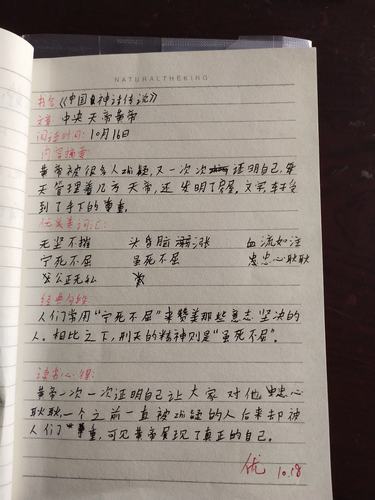 NATURALTHEKING
书名《中国神话传说》
文章: 中央天帝黄帝
阅读时间: 10月16日
内容摘要:
黄帝被很多人质疑,又一次次证明自己,每
天管理着几方天帝,还发明了房屋,文字
到了手下的尊重。
优美词汇:
无坚不摧 头昏脑涨 血流如注
宁死不屈 虽死不屈 忠心耿耿
公正无私
经典句段
人们常用“宁死不屈”来赞美那些意志坚决的
人。相比之下,刑天的精神则是“虽死不屈”。
读书心得:
黄帝一次一次证明自己让大家对他忠心
耿耿,一个之前一直被质疑的人后来却被
人们尊重,可见黄帝展现了真正的自己。
优 10.18